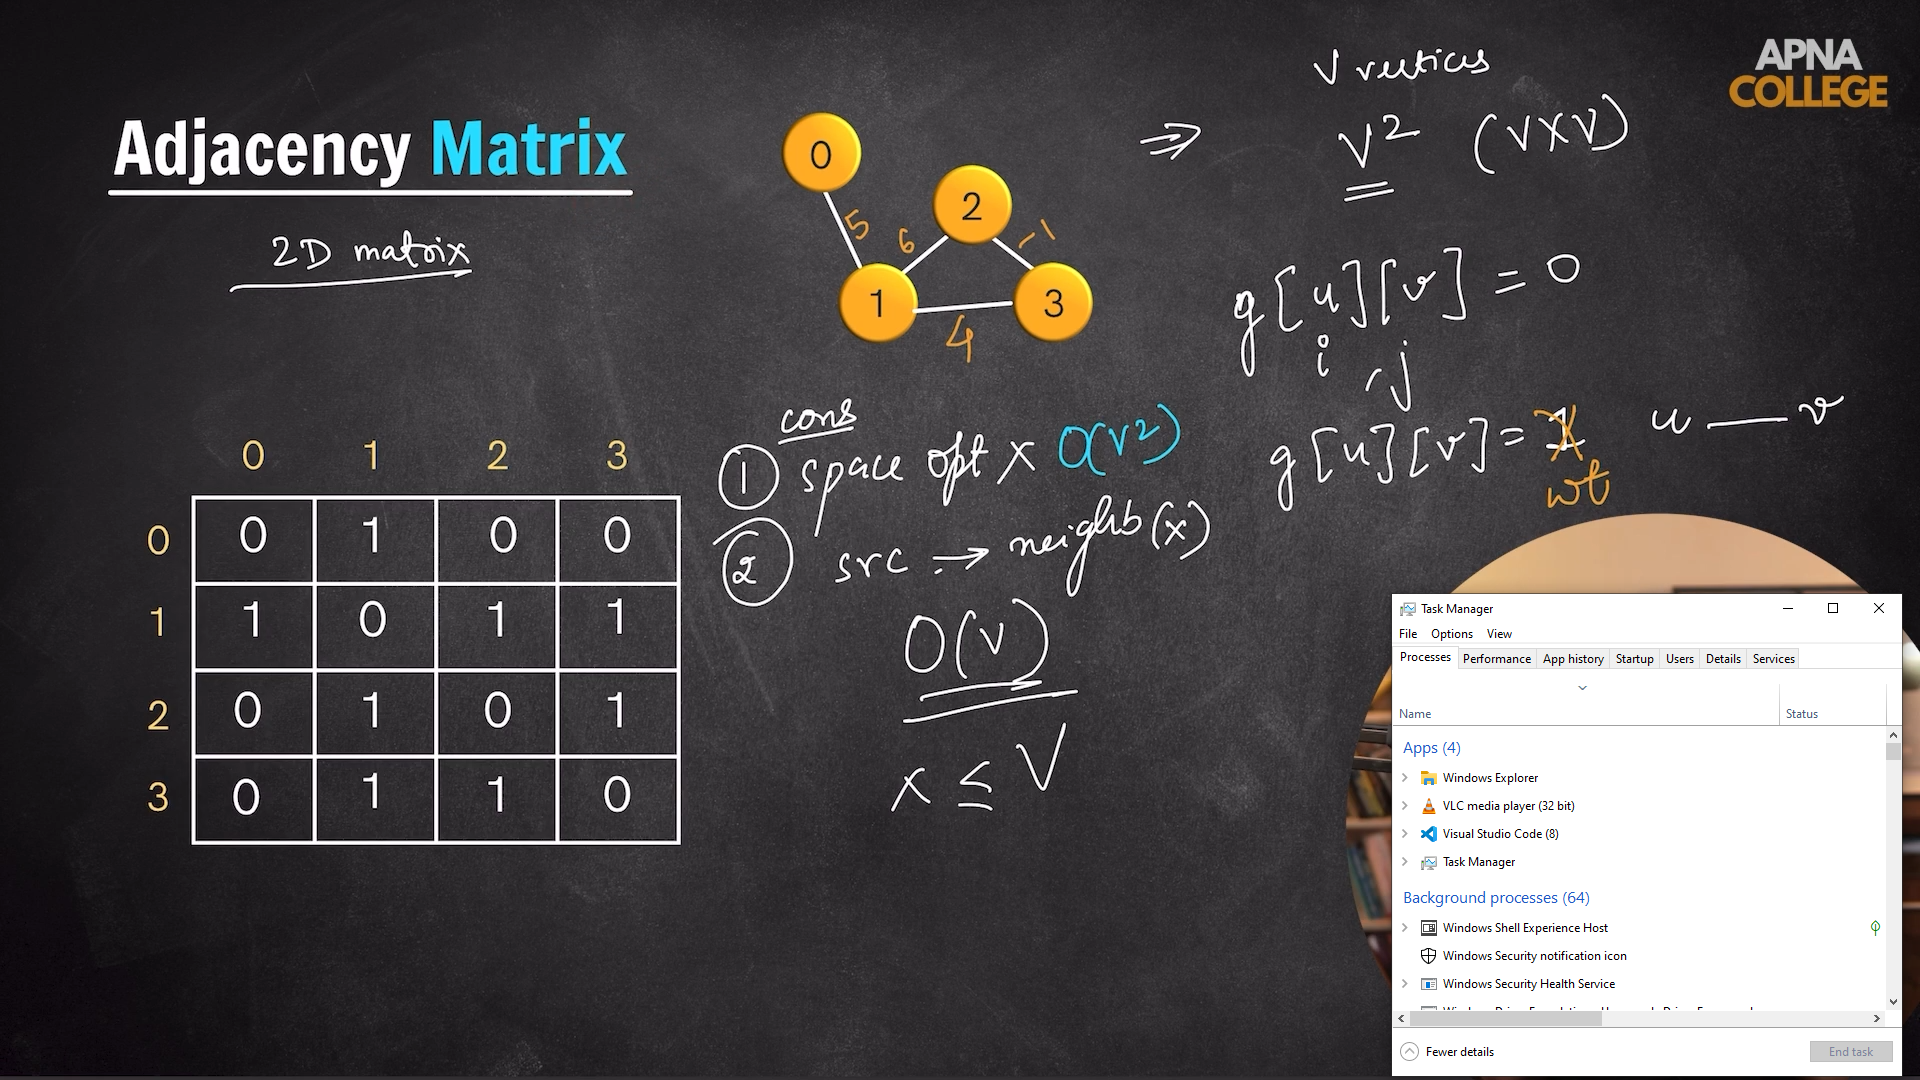 APNA
COLLEGE
Adjacency Matrix
2D matrix
0
2
1
3
5
6
-1
4
V vertices
⇒ V² (VXV)
g[u][v] = 0
i, j
g[u][v] = 1 u — v
wt
cons
① space opt X O(V²)
② src → neighb(x)
O(V)
x ≤ V
0 1 2 3
0 0 1 0 0
1 1 0 1 1
2 0 1 0 1
3 0 1 1 0
Task Manager
File Options View
Processes Performance App history Startup Users Details Services
Name Status
Apps (4)
Windows Explorer
VLC media player (32 bit)
Visual Studio Code (8)
Task Manager
Background processes (64)
Windows Shell Experience Host
Windows Security notification icon
Windows Security Health Service
Fewer details
End task